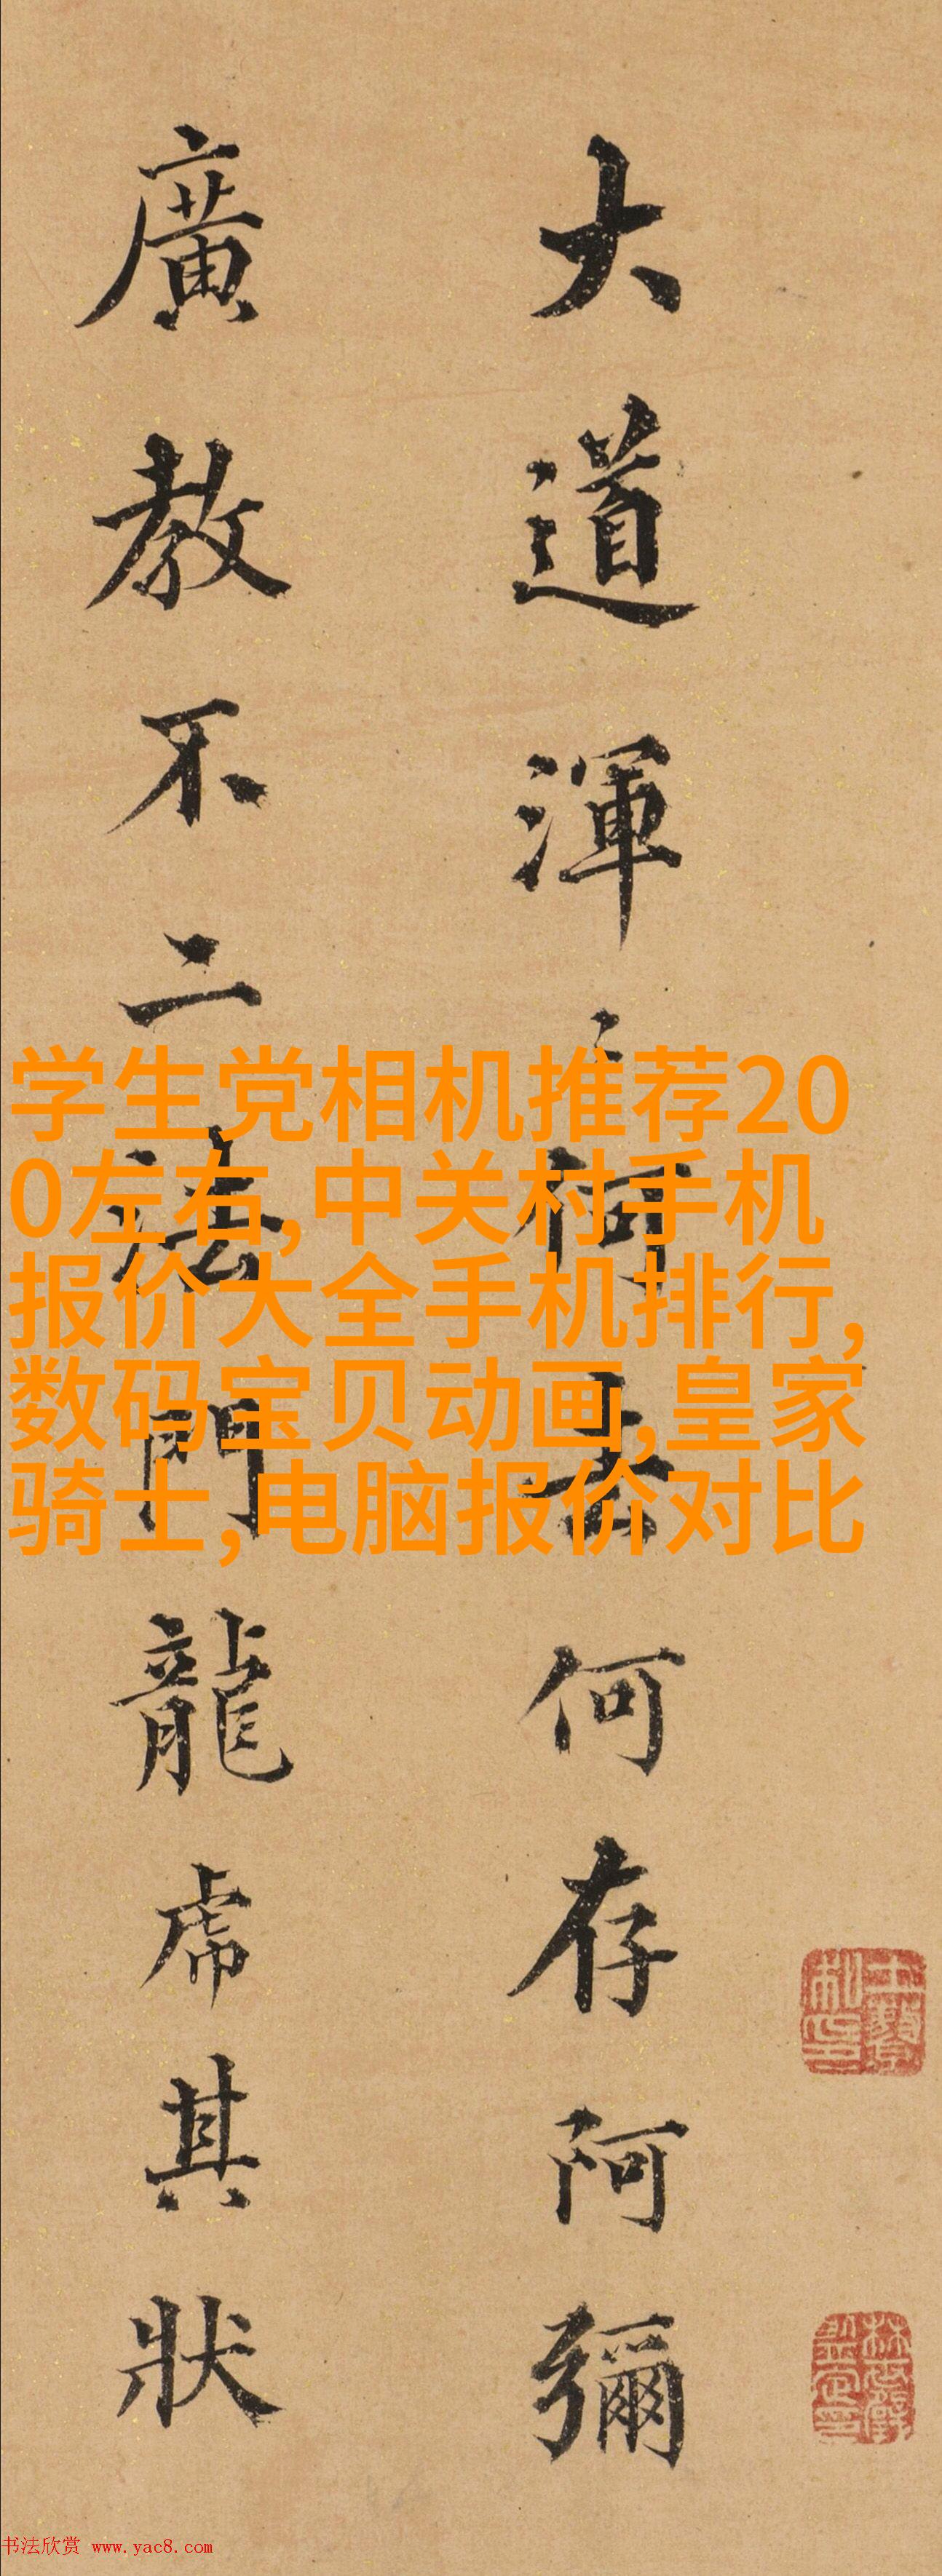 大道渾〻何去何存阿彌
廣教不二法門龍虎其狀
学生党相机推荐20
0左右,中关村手机
报价大全手机排行,
数码宝贝动画,皇家
骑士,电脑报价对比
书法欣赏 www.yac8.com